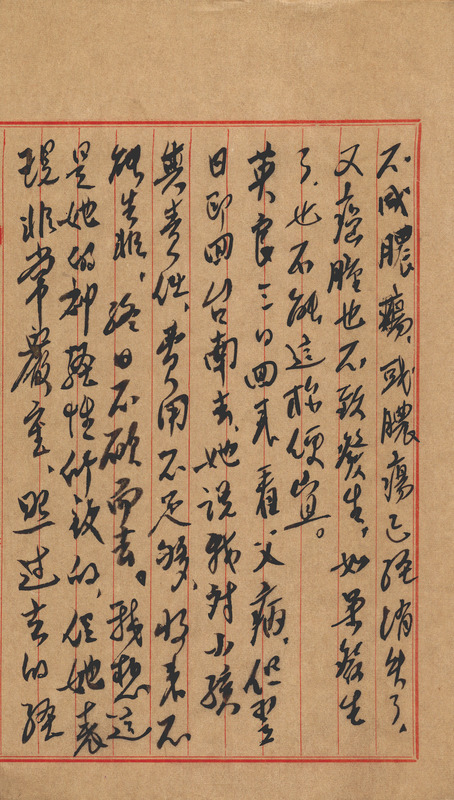 不成膿瘍，或膿瘍已經消失了，
又癌腫也不致發生，如果發生
了，也不能這樣便宜。
英良三日回來看父病，但翌
日即回台南去，她說我對小孩
無責任，費用不足够，將來不
能生服，終日不願而去。我想這
是她的神經性所致的，但她表
現非常嚴重，照過去的經